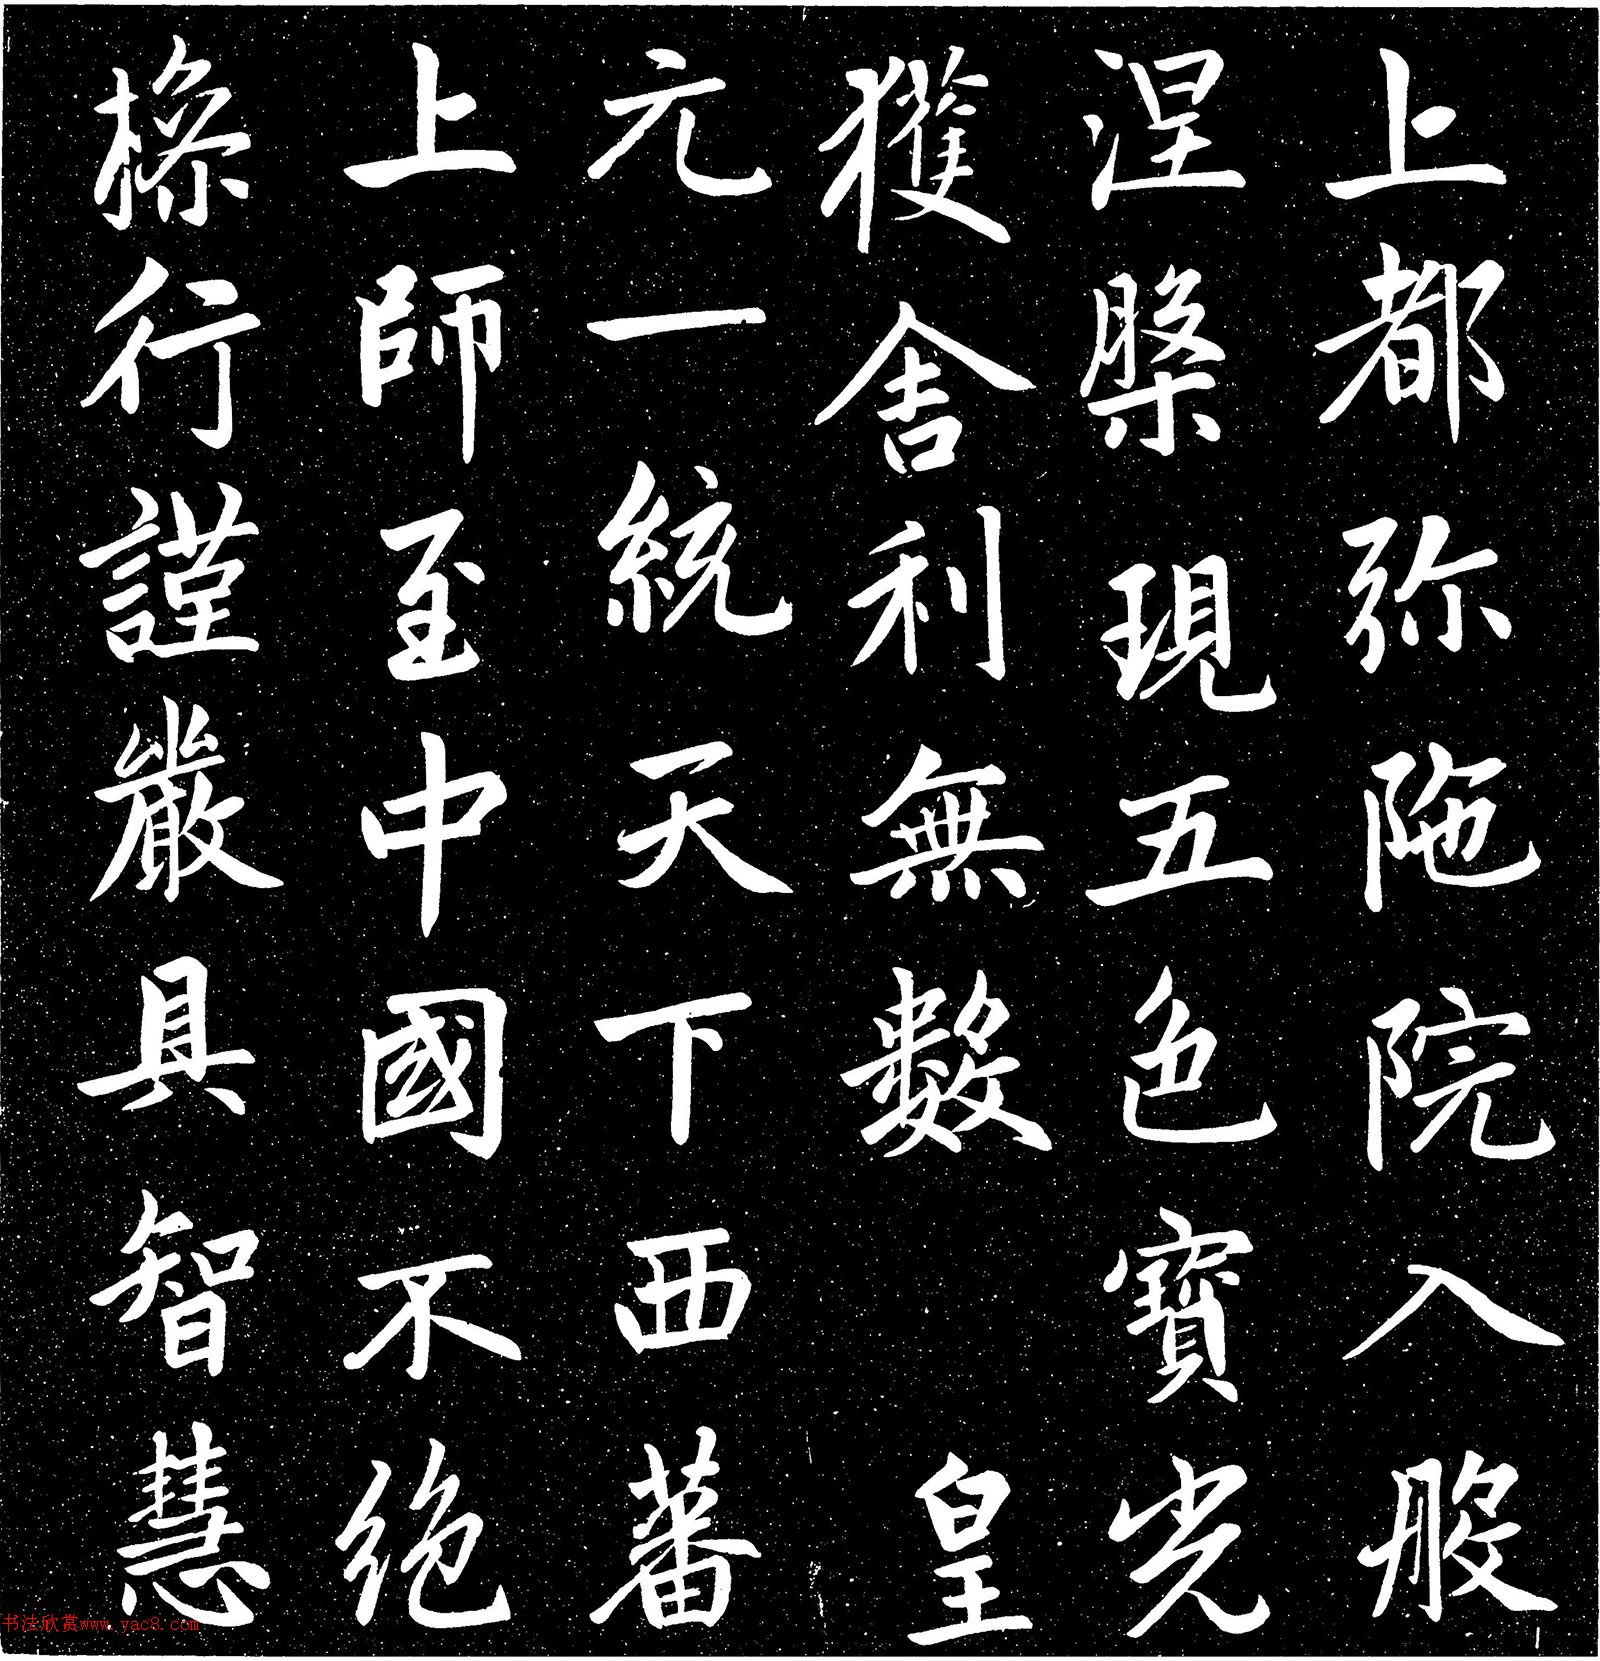 上都弥陁院入般
涅槃現五色寶光
獲舍利無數　皇
元一統天下西蕃
上師至中國不絶
操行謹嚴具智慧
书法欣赏www.yac8.com